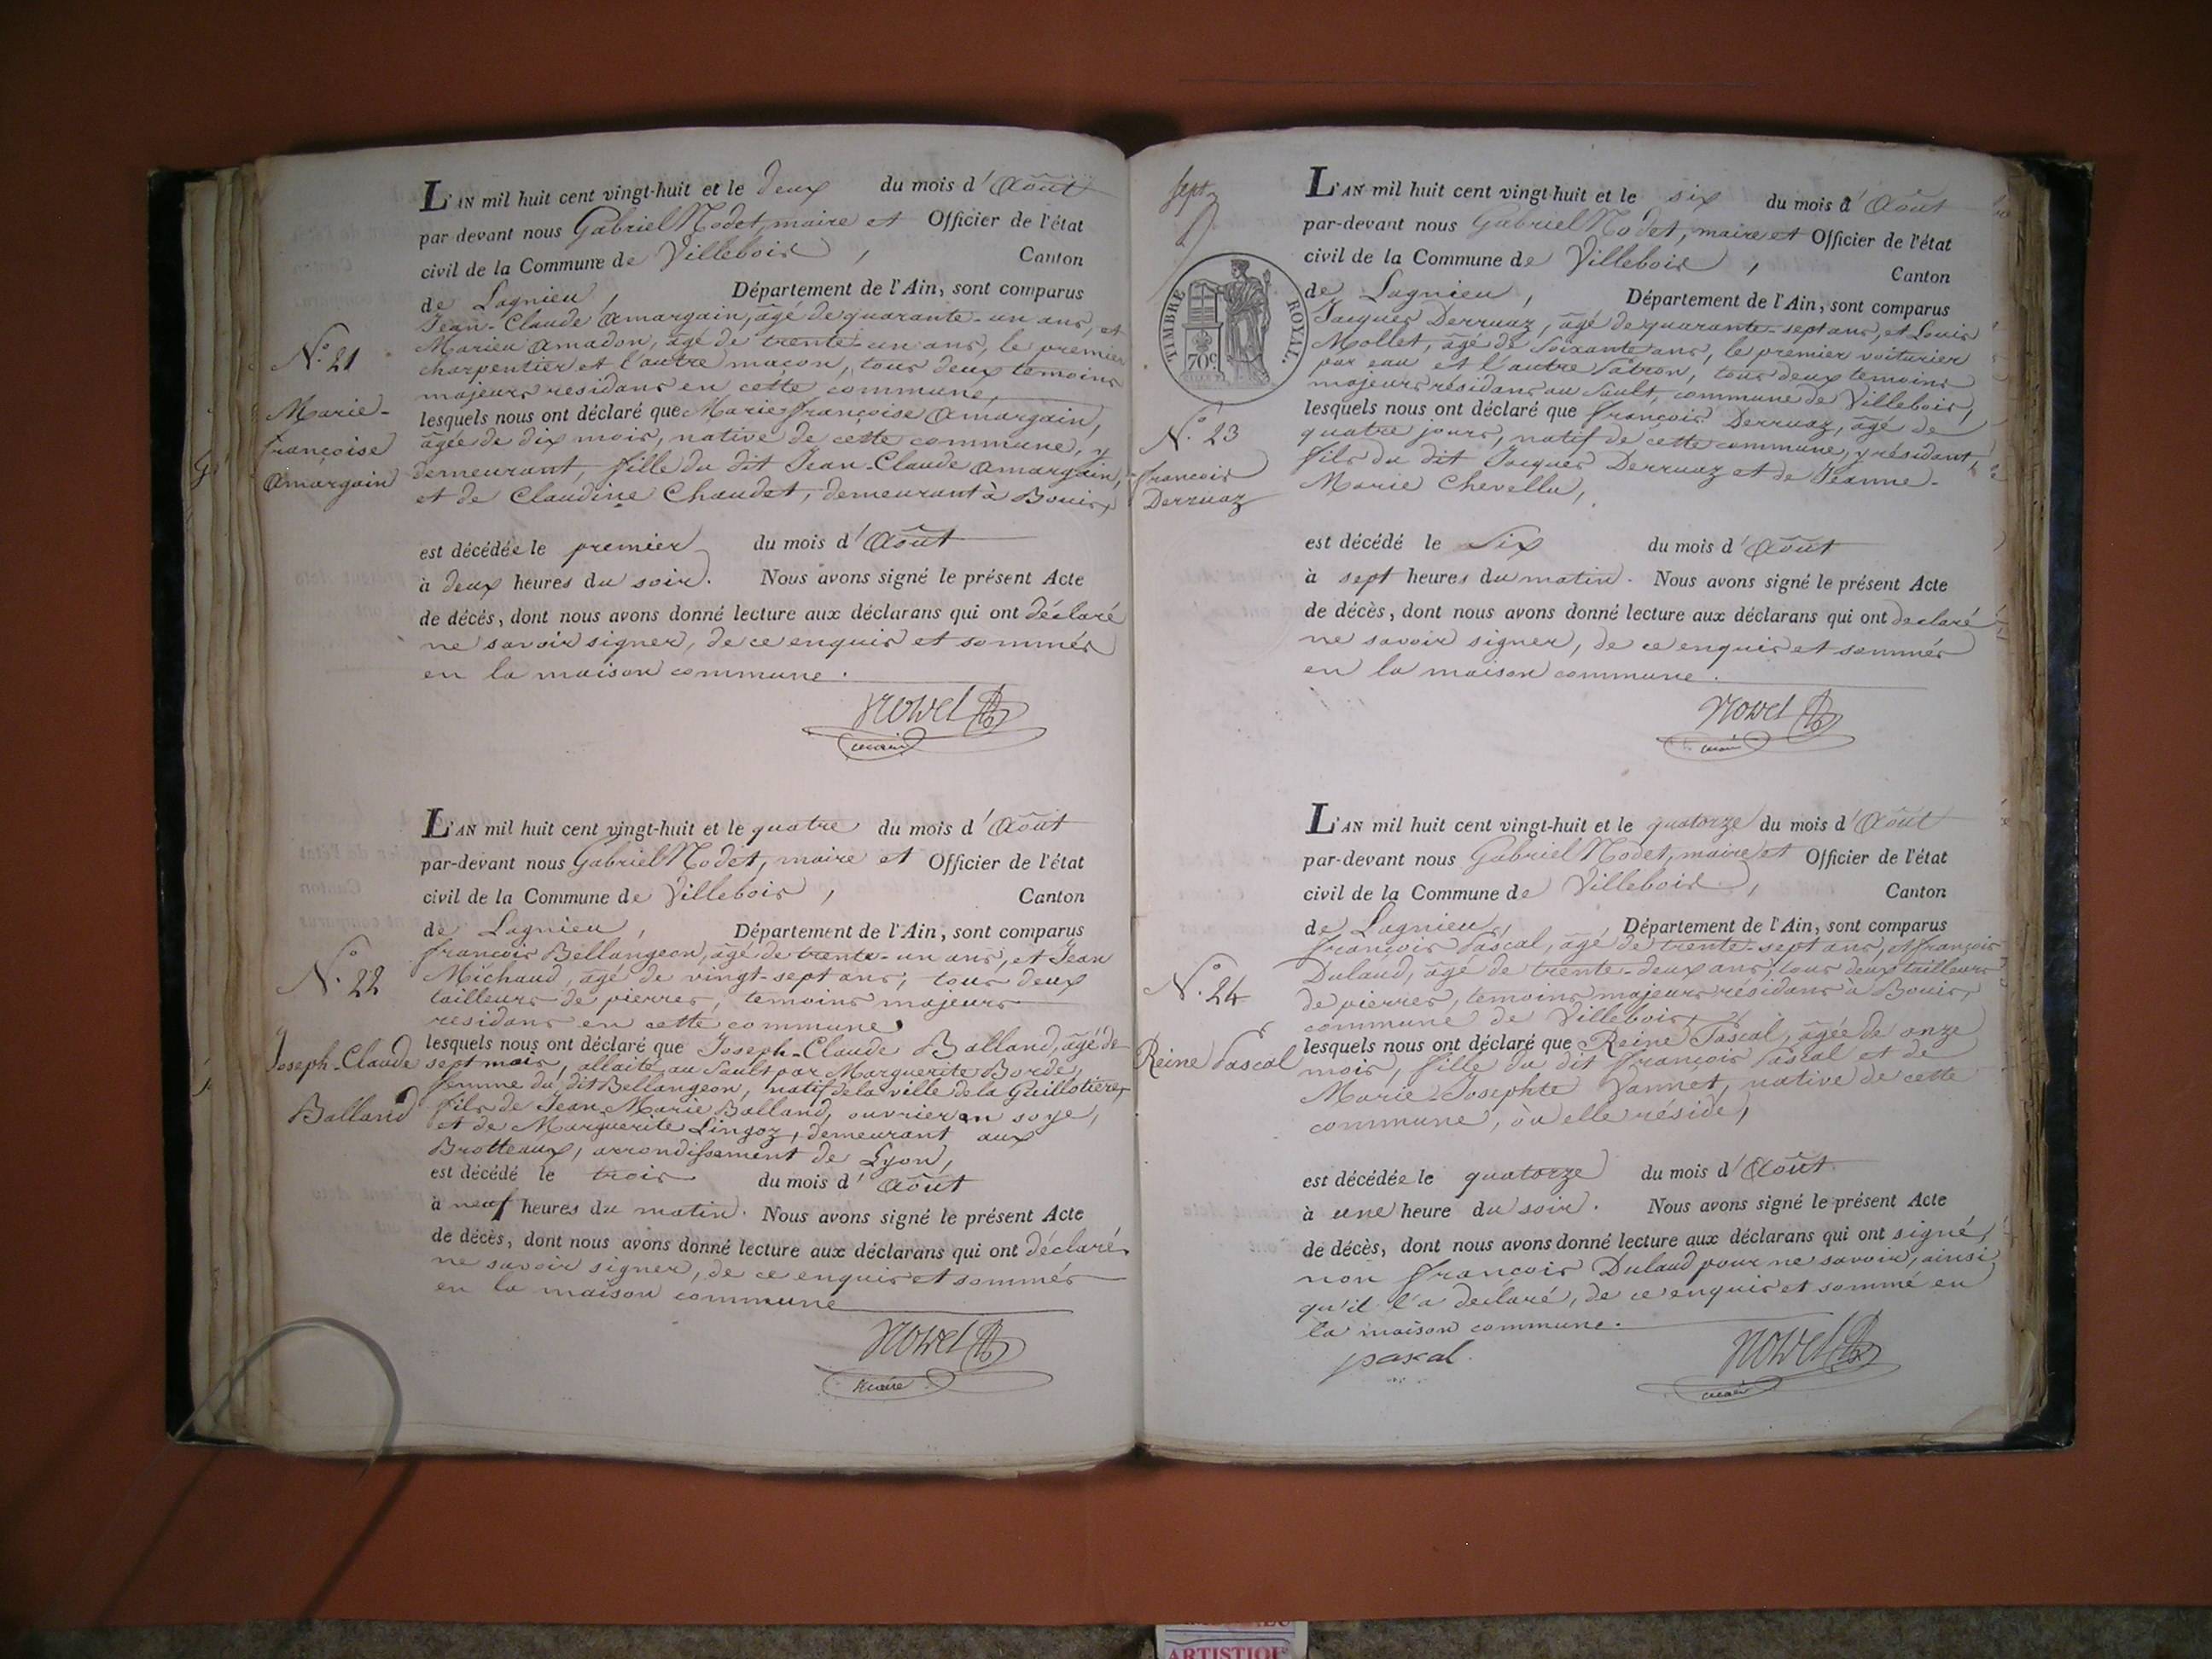 L'AN mil huit cent vingt-huit et le deux du mois d'Août
par-devant nous Gabriel Nodet, maire et Officier de l'état
civil de la Commune de Villebois, Canton
de Lagnieu, Département de l'Ain, sont comparus
Jean-Claude Amargain, âgé de quarante-un ans, et
Marieu Amadon, âgé de trente-un ans, le premier
charpentier et l'autre maçon, tous deux temoins
majeurs residans en cette commune,
lesquels nous ont déclaré que Marie-françoise Amargain,
âgée de dix mois, native de cette commune, y
demeurant, fille du dit Jean-Claude Amargain,
et de Claudine Chaudet, demeurant à Bouis,
N.º 21
Marie-
françoise
Amargain
est décédée le premier du mois d'Août
à deux heures du soir. Nous avons signé le présent Acte
de décès, dont nous avons donné lecture aux déclarans qui ont déclaré
ne savoir signer, de ce enquis et sommés
en la maison commune.
Nodet
maire
L'AN mil huit cent vingt-huit et le quatre du mois d'Août
par-devant nous Gabriel Nodet, maire et Officier de l'état
civil de la Commune de Villebois, Canton
de Lagnieu, Département de l'Ain, sont comparus
françois Bellangeon, âgé de trente-un ans, et Jean
Michaud, âgé de vingt-sept ans, tous deux
tailleurs de pierres, temoins majeurs
residans en cette commune
lesquels nous ont déclaré que Joseph-Claude Balland, âgé de
sept mois, allaité au Sault par Marguerite Borde,
femme du dit Bellangeon, natif de la ville de la Guillotière,
fils de Jean-Marie Balland, ouvrier en soye,
et de Marguerite Lingoz, demeurant aux
Brotteaux, arrondissement de Lyon,
N.º 22
Joseph-Claude
Balland
est décédé le trois du mois d'Août
à neuf heures du matin. Nous avons signé le présent Acte
de décès, dont nous avons donné lecture aux déclarans qui ont déclaré
ne savoir signer, de ce enquis et sommés
en la maison commune
Nodet
maire
sept
TIMBRE ROYAL.
70c
L'AN mil huit cent vingt-huit et le six du mois d'Août
par-devant nous Gabriel Nodet, maire et Officier de l'état
civil de la Commune de Villebois, Canton
de Lagnieu, Département de l'Ain, sont comparus
Jacques Derruaz, âgé de quarante-sept ans, et Louis
Mollet, âgé de soixante ans, le premier voiturier
par eau et l'autre Patron, tous deux temoins
majeurs résidans au Sault, commune de Villebois,
lesquels nous ont déclaré que françois Derruaz, âgé de
quatre jours, natif de cette commune, y résidant,
fils du dit Jacques Derruaz et de Jeanne-
Marie Chevellu,
N.º 23
francois
Derruaz
est décédé le Six du mois d'Août
à sept heures du matin. Nous avons signé le présent Acte
de décès, dont nous avons donné lecture aux déclarans qui ont declaré
ne savoir signer, de ce enquis et sommés
en la maison commune.
Nodet
maire
L'AN mil huit cent vingt-huit et le quatorze du mois d'Août
par-devant nous Gabriel Nodet, maire et Officier de l'état
civil de la Commune de Villebois, Canton
de Lagnieu, Département de l'Ain, sont comparus
françois Pascal, âgé de trente-sept ans, et françois
Dulaud, âgé de trente-deux ans, tous deux tailleurs
de pierres, temoins majeurs résidans à Bouis,
commune de Villebois,
lesquels nous ont déclaré que Reine Pascal, âgée de onze
mois, fille du dit françois Pascal et de
Marie-Josephte Vannet, native de cette
commune, où elle réside,
N.º 24
Reine Pascal
est décédée le quatorze du mois d'Août
à une heure du soir. Nous avons signé le présent Acte
de décès, dont nous avons donné lecture aux déclarans qui ont signé,
non françois Dulaud pour ne savoir, ainsi
qu'il l'a declaré, de ce enquis et sommé en
la maison commune.
pascal
Nodet
maire
ARTISTIQUE